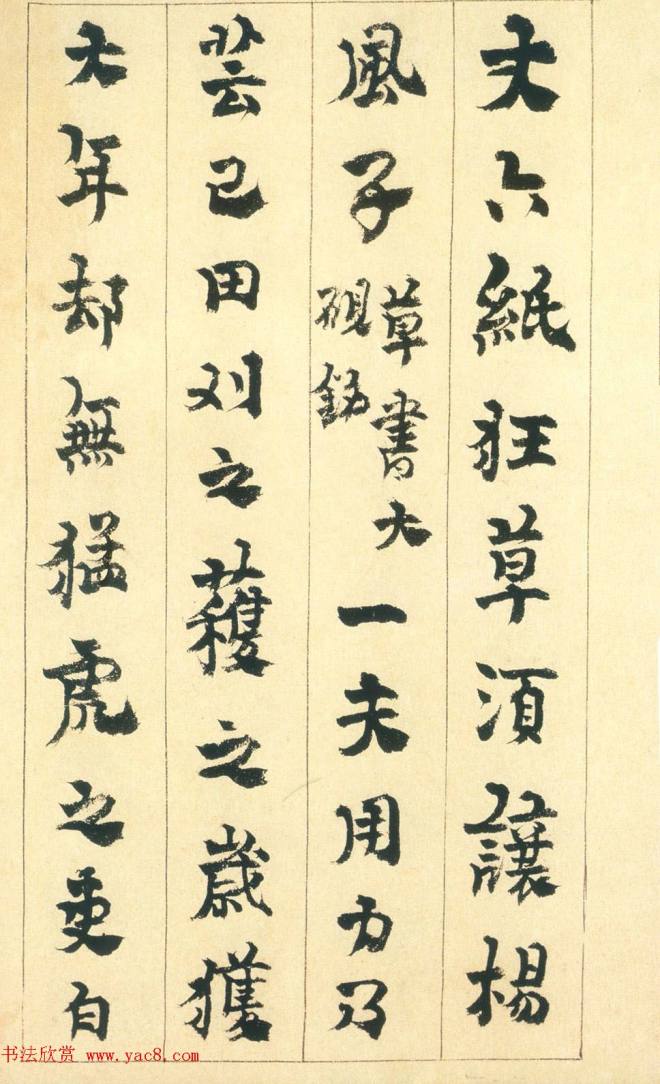 丈六紙狂草須讓楊
風子草書大硯一夫用力乃
芸己田刈之穫之歲獲
大年却無猛虎之吏白
书法欣赏 www.yac8.com